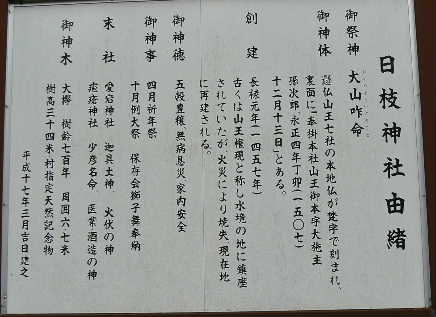 日枝神社由緒
御祭神 大山咋命
御神体 懸仏山王七社の本地仏が梵字で刻まれ、
裏面に「奉掛本社山王御本字大施主
孫次郎永正四年丁卯(一五〇七)
十二月十三日」とある。
創建 長禄元年(一四五七年)
古くは山王権現と称し水境の地に鎮座
されていたが火災により焼失現在地
に再建される。
御神徳 五穀豊穣無病息災家内安全
御神事 四月祈年祭
十月例大祭 保存会獅子舞奉納
末社 愛宕神社 迦具土神 火伏の神
疱瘡神社 少彦名命 医薬酒造の神
御神木 大欅 樹齢七百年 周囲六・七米
樹高三十四米村指定天然記念物
平成十七年三月吉日建之